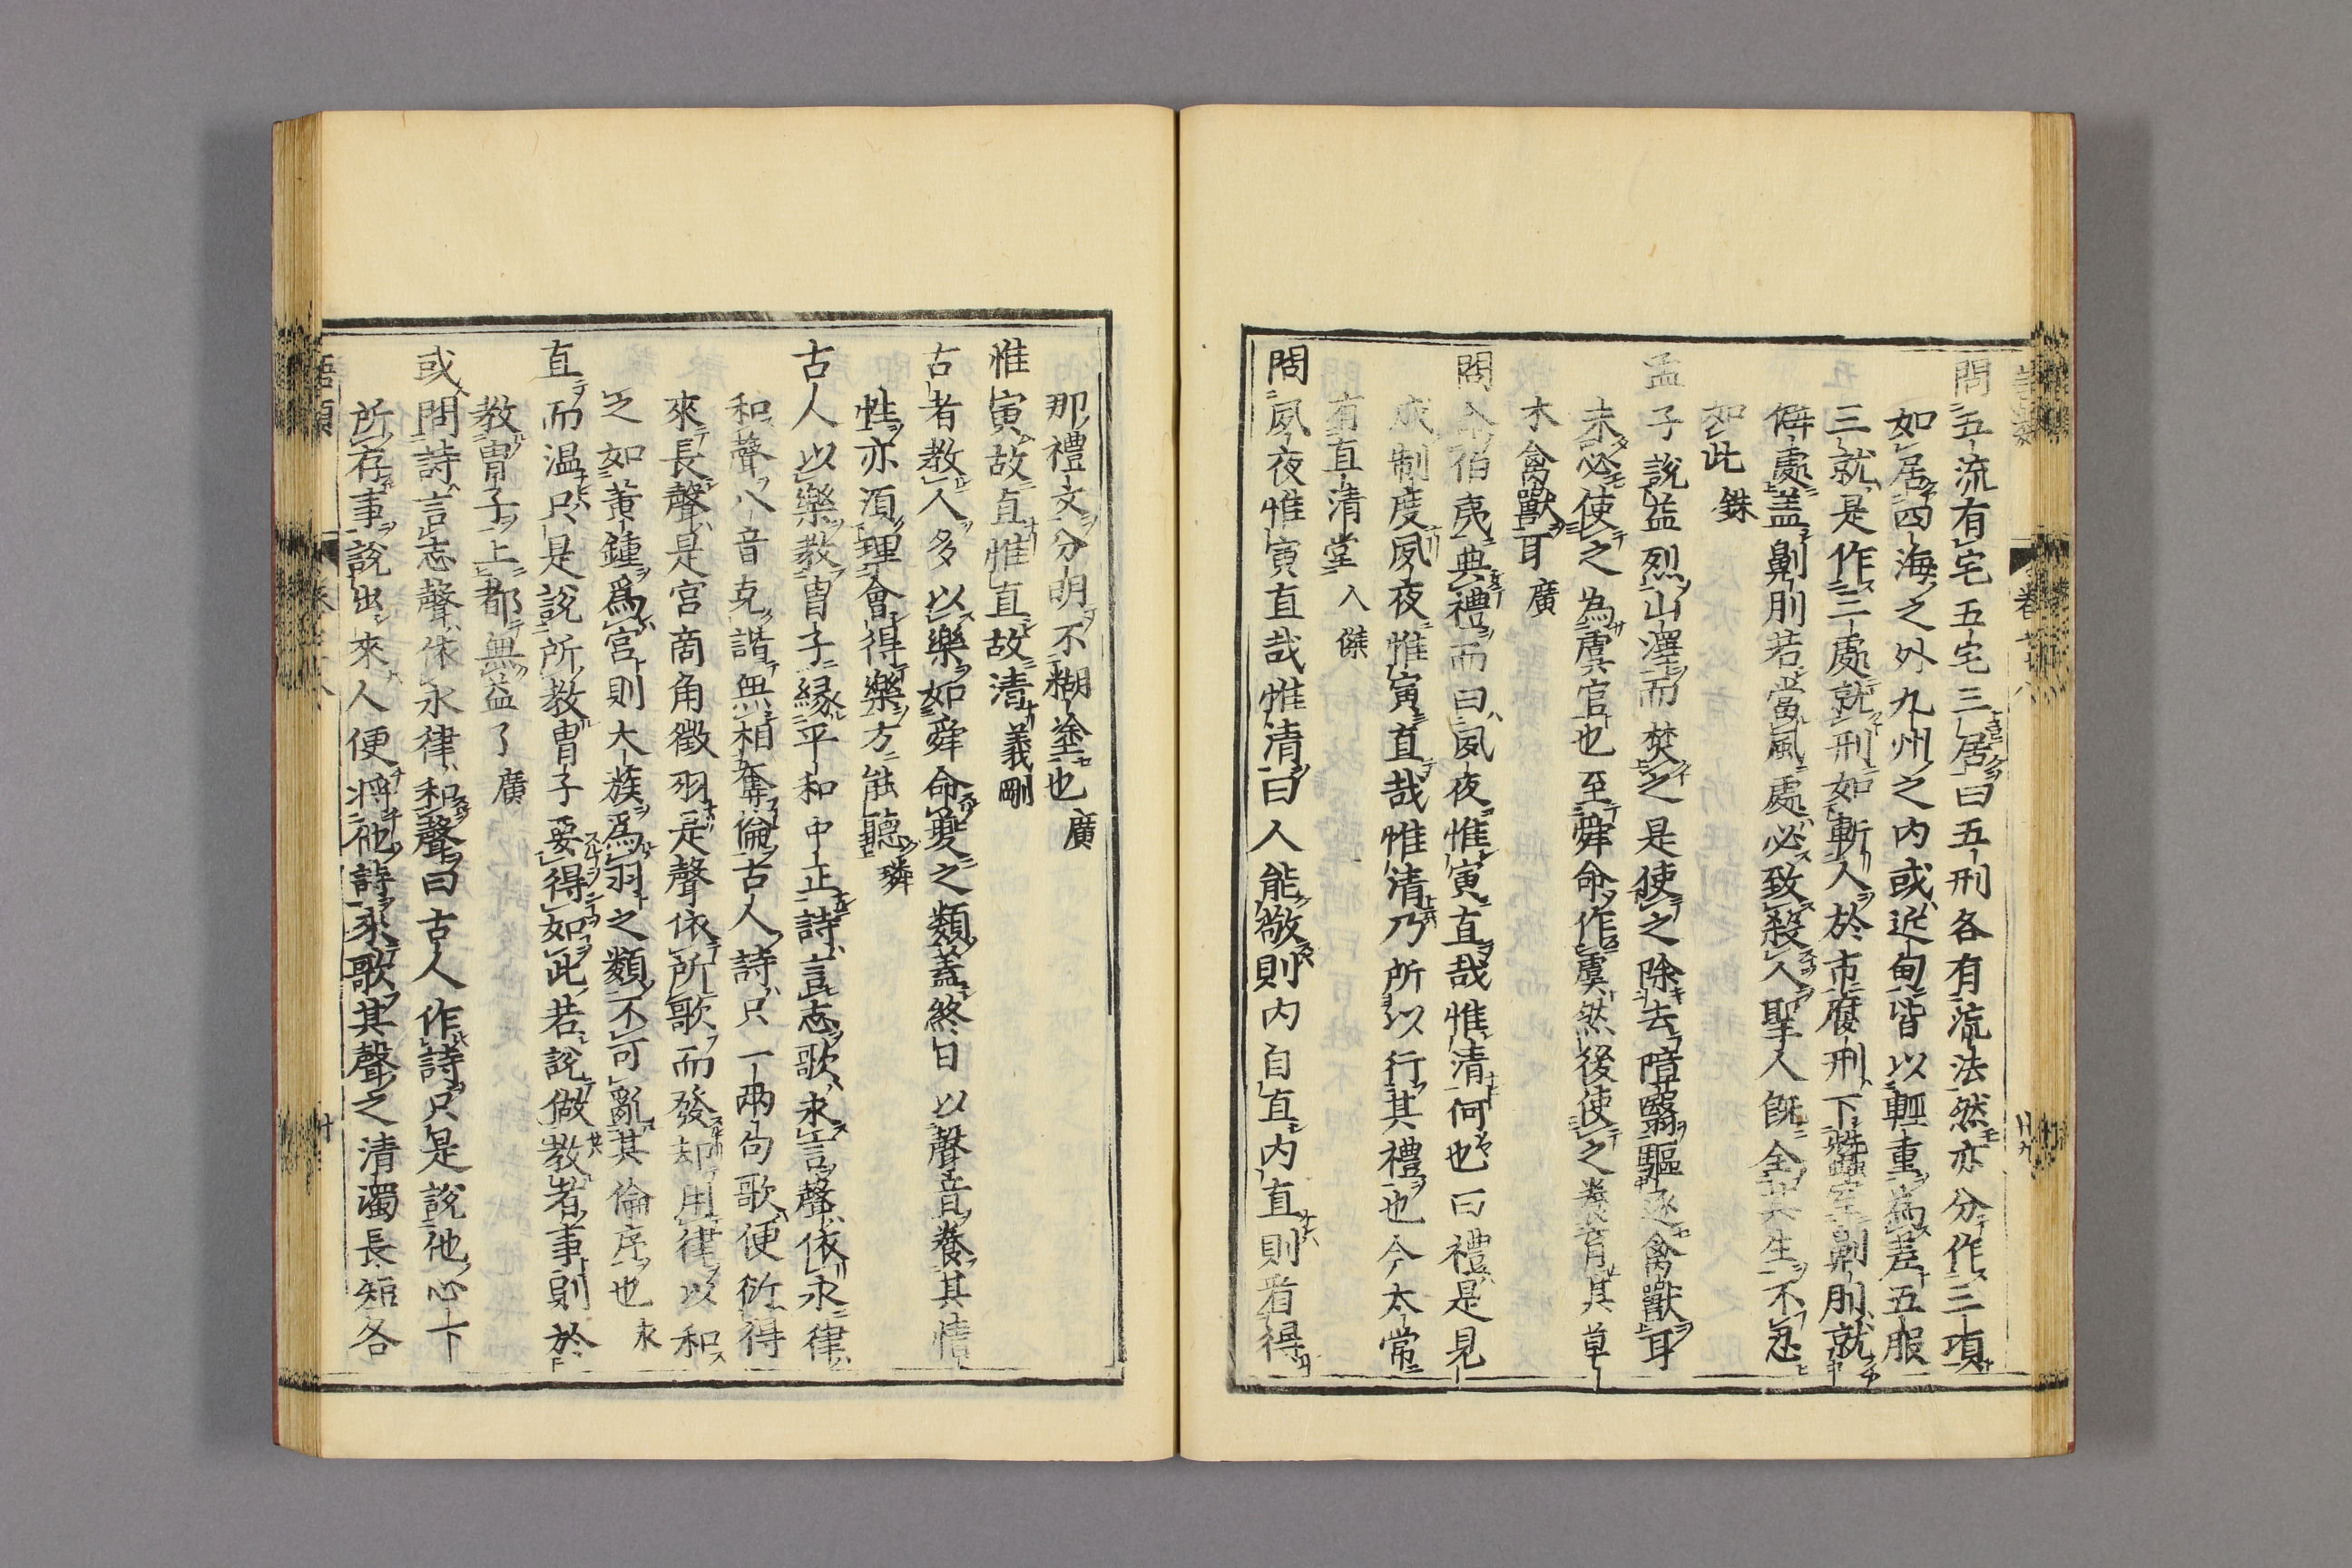 問五流有宅五宅三居曰五刑各有流法然亦分作三項
如居四海之外九州之内或近甸皆以輕重爲差五服
三就是作三處就刑如斬人於市腐刑下蠶室劓刖就
僻處盖劓刖若當風處必致殺人聖人既全其生不忍
如此 銖
孟子說益烈山澤而焚之是使之除去障翳驅逐禽獸耳
未必使之為虞官也至舜命作虞然後使之養育其草
木禽獸耳 廣
問命伯夷典禮而曰夙夜惟寅直哉惟清何也曰禮是見
成制度夙夜惟寅直哉惟清乃所以行其禮也今太常
有直清堂 人傑
問夙夜惟寅直哉惟清曰人能敬則内自直内直則看得
那禮文分明不糊塗也 廣
惟寅故直惟直故清 義剛
古者教人多以樂如舜命夔之類蓋終日以聲音養其情
性亦須理會得樂方能聽 璘
古人以樂教冑子緣平和中正詩言志歌永言聲依永律
和聲八音克諧無相奪倫古人詩只一兩句歌便衍得
來長聲是宮商角徵羽是聲依所歌而發却用律以和
之如黃鍾爲宮則大族爲羽之類不可亂其倫序也 永
直而温只是說所教冑子要得如此若說做教者事則於
教冑子上都無益了 廣
或問詩言志聲依永律和聲曰古人作詩只是說他心下
所存事說出來人便將他詩來歌其聲之清濁長短各
語類 卷